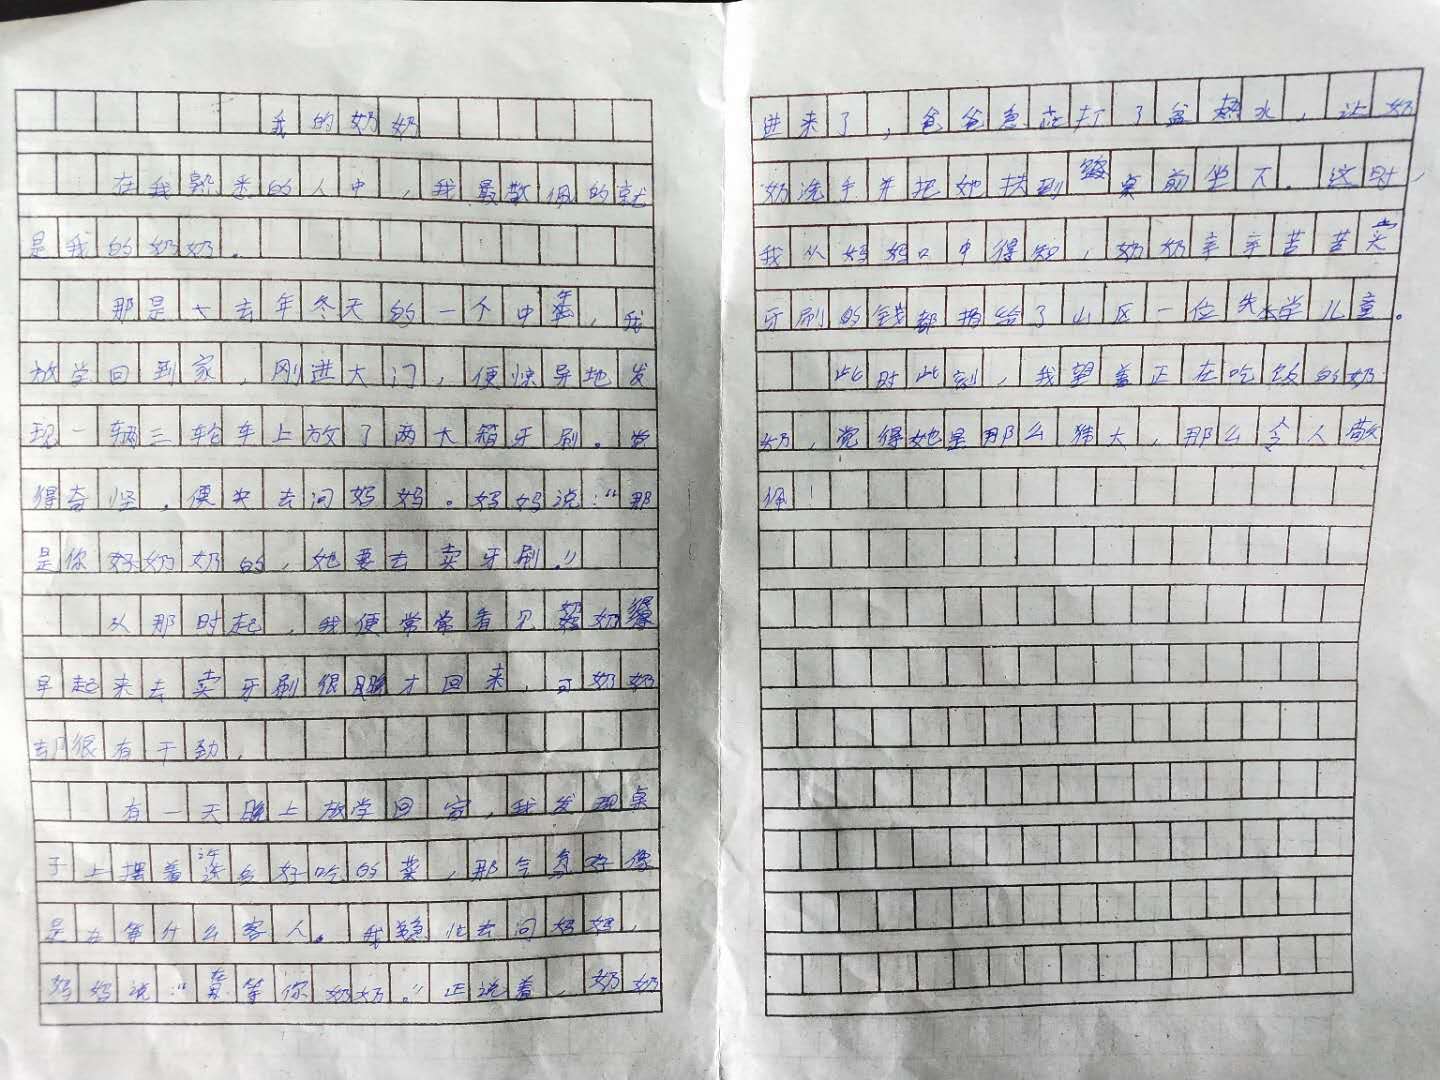 我的奶奶
在我熟悉的人中，我最敬佩的就
是我的奶奶。
那是大去年冬天的一个中午，我
放学回到家，刚进大门，便惊异地发
现一辆三轮车上放了两大箱牙刷。觉
得奇怪，便去问妈妈。妈妈说：“那
是你好奶奶的，她要去卖牙刷。”
从那时起，我便常常看见奶奶得
早起来去卖牙刷很晚才回来，可奶奶
却很有干劲，
有一天晚上放学回家，我发现桌
子上摆着许多好吃的菜，那气氛好像
是在等什么客人。我急忙去问妈妈，
妈妈说：“在等你奶奶。”正说着，奶奶
进来了，爸爸急忙打了盆热水，让奶
奶洗手并把她扶到餐桌前坐下。这时，
我从妈妈口中得知，奶奶辛辛苦苦卖
牙刷的钱都捐给了山区一位失学儿童。
此时此刻，我望着正在吃饭的奶
奶，觉得她是那么伟大，那么令人敬
佩！